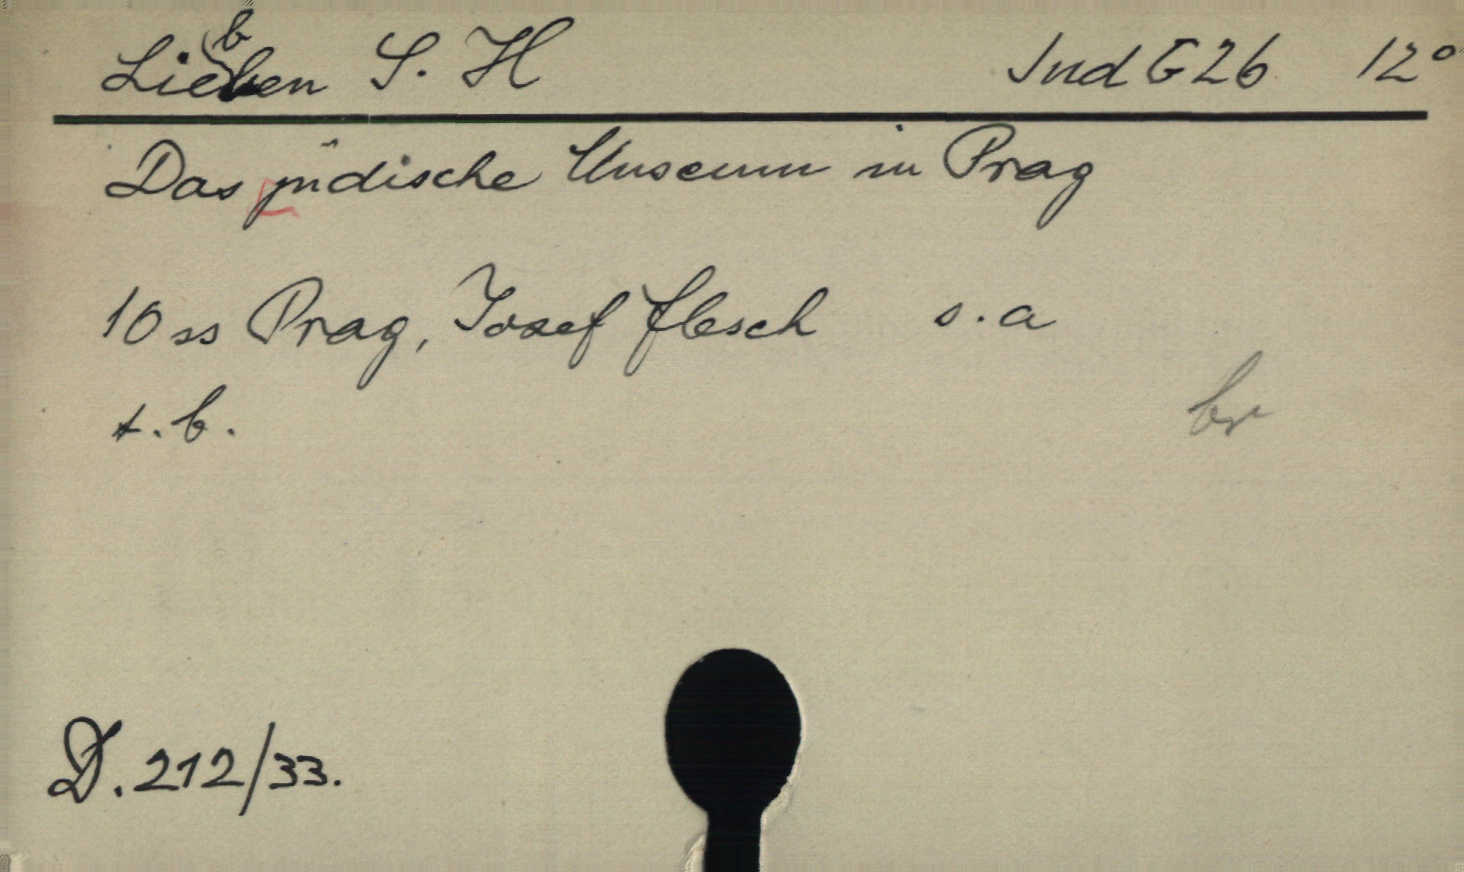 Lieben S. H Jud G 26 12°
Das jüdische Museum in Prag
10 ss Prag, Josef Flesch s.a
t.b.
br
D. 212/33.